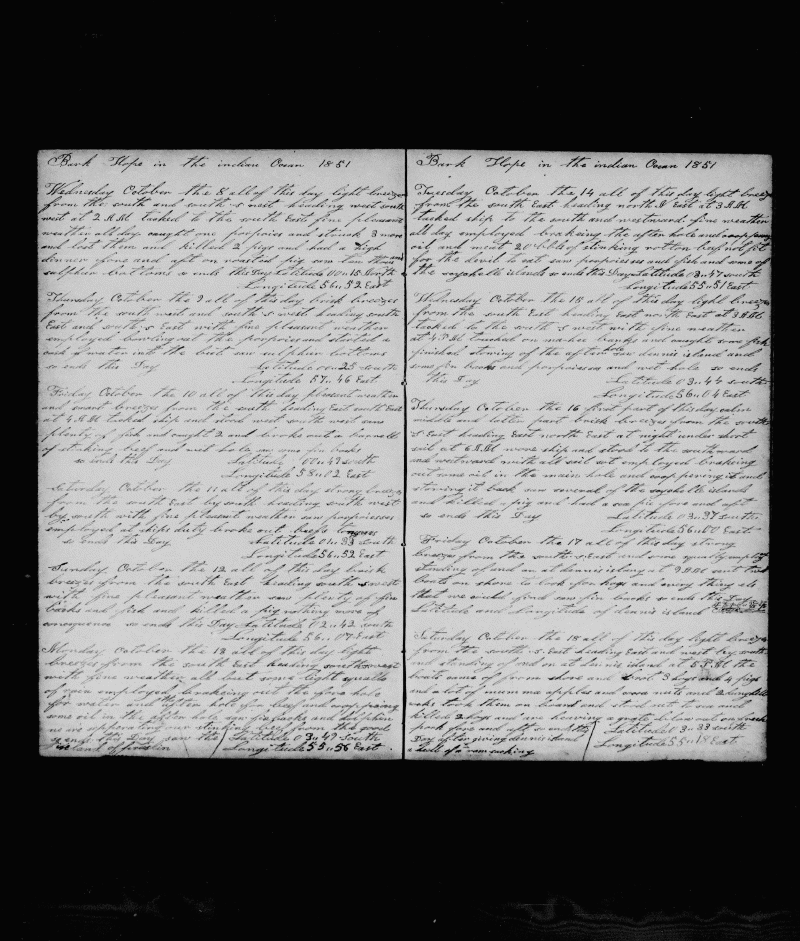 Bark Hope in the indian Ocean 1851
Wednesday October the 8 all of this day light breezes
from the south and south s west heading west south
west at 2 A.M tacked to the south East fine pleasant
weather all day caught one porpois and struck 3 more
and lost them and killed 2 pigs and had a high
dinner fore and aft on roasted pig saw ten thousand
sulpher bottoms so ends this Day Latitude 00 " 15 South
Longitude 56 " 52 East
Thursday October the 9 all of this day brisk breezes
from the south west and south s west heading south
East and south s East with fine pleasant weather
employed the porpois and started a
cask of water into the butt saw sulpher bottoms
so ends this Day Latitude 00 " 23 south
Longitude 57 " 46 East
Friday October the 10 all of this day pleasant weather
and smart breezes from the south heading East south East
at 4 A.M tacked ship and stood west south west saw
plenty of fish and caught 2 and broke out a barrell
of stinking beef and wet hole saw some fin backs
so ends this Day Latitude 00 " 49 south
Longitude 58 " 12 East
Saturday October the 11 all of this day strong breezes
from the south East by south heading south west
by south with fine pleasant weather saw porpoises
employed at ships duty broke out
so ends this Day Latitude 01 " 33 South
Longitude 56 " 52 East
Sunday October the 12 all of this day brisk
breezes from the south East heading south s west
with fine pleasant weather saw plenty of fin
backs and fish and killed a pig nothing more of
consequence so ends this Day Latitude 02 " 42 south
Longitude 56 " 07 East
Monday October the 13 all of this day light
breezes from the south East heading south s west
with fine weather all but some light squalls
of rain employed brakeing out the fore hole
for water and after hole for beef and coopering
some oil in the after hole saw fin backs and dolphin
so ends this Day saw the Latitude 03 " 49 South
island of Longitude 55 " 56 East
Bark Hope in the indian Ocean 1851
Tuesday October the 14 all of this day light breezes
from the south East heading north N East at 3 A.M
tacked ship to the south and westward fine weather
all day employed brakeing the after hole and coopering
oil and most 20 bbls of stinking rotton beef not fit
for the devil to eat saw porpoises and fish and some of
the seychelle islands so ends this Day Latitude 03 " 47 south
Longitude 55 " 51 East
Wednesday October the 15 all of this day light breezes
from the south East heading East north East at 3 A.M
tacked to the south s west with fine weather
at 4 P.M touched on banks and caught some fish
finished stowing of the after hole saw dennis island and
some fin backs and porpoises and wet hole so ends
this Day Latitude 03 " 44 south
Longitude 56 " 04 East
Thursday October the 16 first part of this day calm
middle and latter part brisk breezes from the south
s East heading East north East at night under short
sail at 6 A.M wore ship and stood to the southward
and westward with all sail set employed brakeing
out some oil in the main hole and coopering it and
stowing it back saw several of the seychelle islands
and killed a pig and had a sea pie fore and aft
so ends this Day Latitude 03 " 37 south
Longitude 56 " 00 East
Friday October the 17 all of this day strong
breezes from the south s East and some squalls employed
standing of and on at dennis island at 9 A.M sent two
boats on shore to look for hogs and every thing els
that we could find saw fin backs so ends this Day
Latitude and Longitude of dennis island
Saturday October the 18 all of this day light breezes
from the south s East heading East and west by south
and standing of and on at dennis island at 5 P.M the
boats came of from shore and brot 3 hogs and 4 pigs
and a lot of mumma apples and coco nuts and 2
took them on board and stood out to sea and
killed 2 hogs and are having a grate blow out on fresh
pork fore and aft so ends this Latitude 03 " 33 south
Day after giving dennis island Longitude 55 " 18 East
a hell of a ransacking